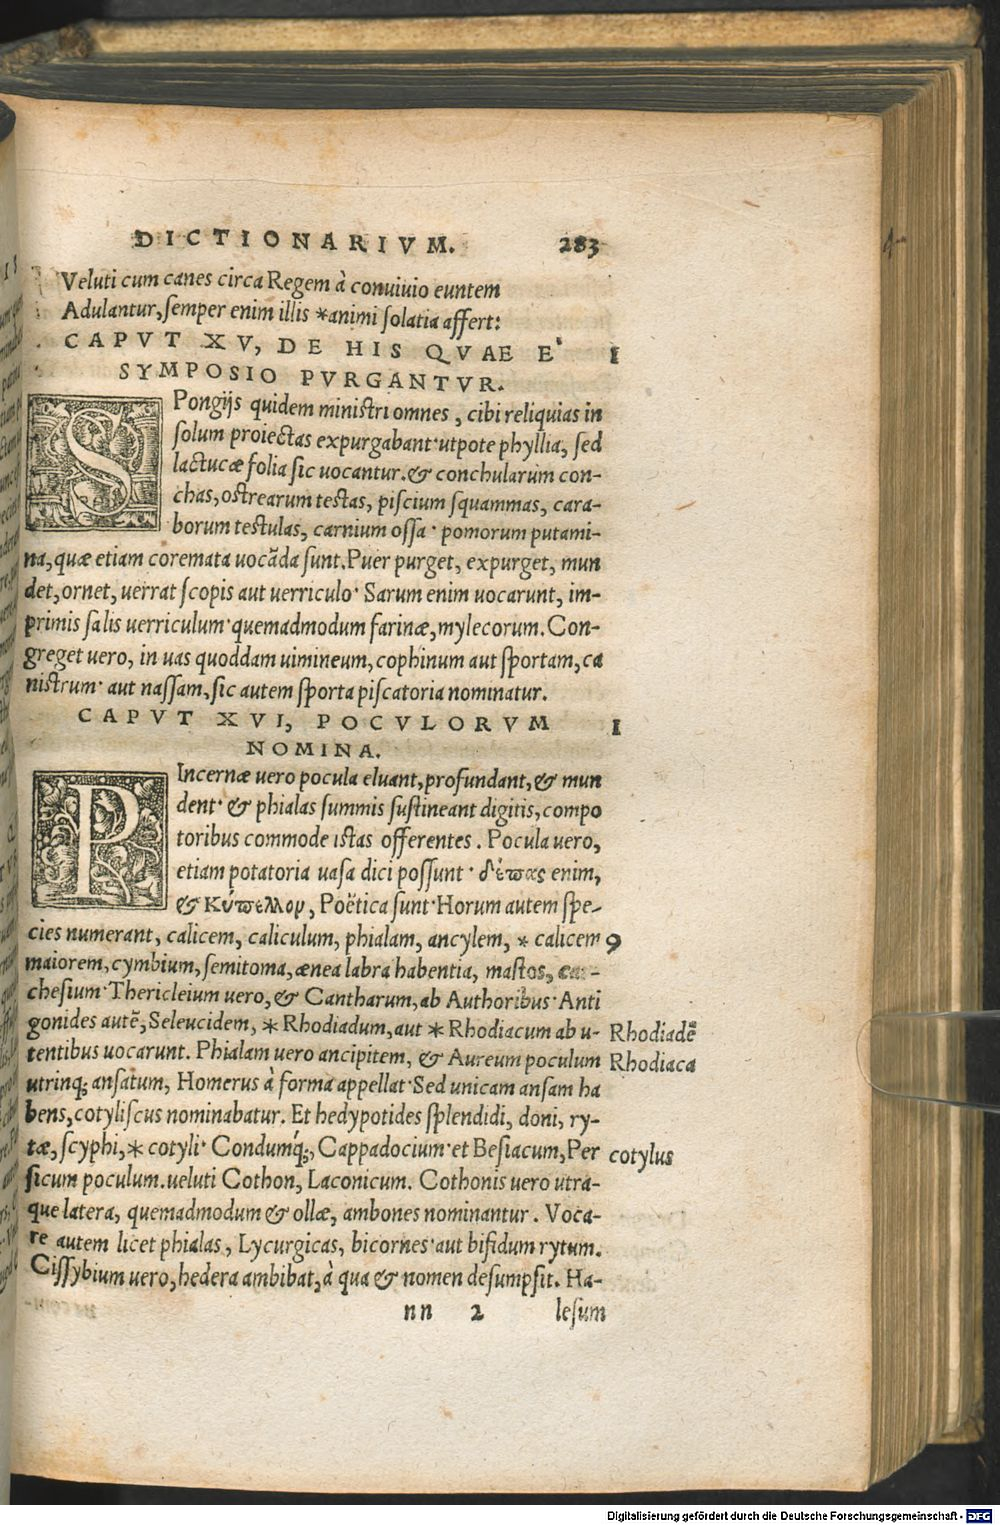 DICTIONARIVM. 283
Veluti cum canes circa Regem à conuiuio euntem
Adulantur, semper enim illis *animi solatia affert:
CAPVT XV, DE HIS QVAE E' I
SYMPOSIO PVRGANTVR.
SPongijs quidem ministri omnes, cibi reliquias in
solum proiectas expurgabant· utpote phyllia, sed
lactucæ folia sic uocantur. & conchularum con-
chas, ostrearum testas, piscium squammas, cara-
borum testulas, carnium ossa· pomorum putami-
na, quæ etiam coremata uocãda sunt. Puer purget, expurget, mun
det, ornet, uerrat scopis aut uerriculo· Sarum enim uocarunt, im-
primis salis uerriculum· quemadmodum farinæ, mylecorum. Con-
greget uero, in uas quoddam uimineum, cophinum aut sportam, ca
nistrum· aut nassam, sic autem sporta piscatoria nominatur.
CAPVT XVI, POCVLORVM I
NOMINA.
PIncernæ uero pocula eluant, profundant, & mun
dent· & phialas summis sustineant digitis, compo
toribus commode istas offerentes. Pocula uero,
etiam potatoria uasa dici possunt· δέπας enim,
& Κύπελλον, Poëtica sunt· Horum autem spe-
cies numerant, calicem, caliculum, phialam, ancylem, * calicem 9
maiorem, cymbium, semitoma, ænea labra habentia, mastos, car-
chesium· Thericleium uero, & Cantharum, ab Authoribus· Anti
gonides autẽ, Seleucidem, *Rhodiadum, aut *Rhodiacum ab u- Rhodiadẽ
tentibus uocarunt. Phialam uero ancipitem, & Aureum poculum Rhodiaca
utrinq; ansatum, Homerus à forma appellat· Sed unicam ansam ha
bens, cotyliscus nominabatur. Et hedypotides splendidi, doni, ry-
tæ, scyphi, * cotyli· Condumq́;, Cappadocium· et Besiacum, Per cotylus
sicum poculum. ueluti Cothon, Laconicum. Cothonis uero utra-
que latera, quemadmodum & ollæ, ambones nominantur. Voca-
re autem licet phialas, Lycurgicas, bicornes· aut bifidum rytum.
Cissybium uero, hedera ambibat, à qua & nomen desumpsit. Ha-
nn 2 lesum
Digitalisierung gefördert durch die Deutsche Forschungsgemeinschaft - DFG